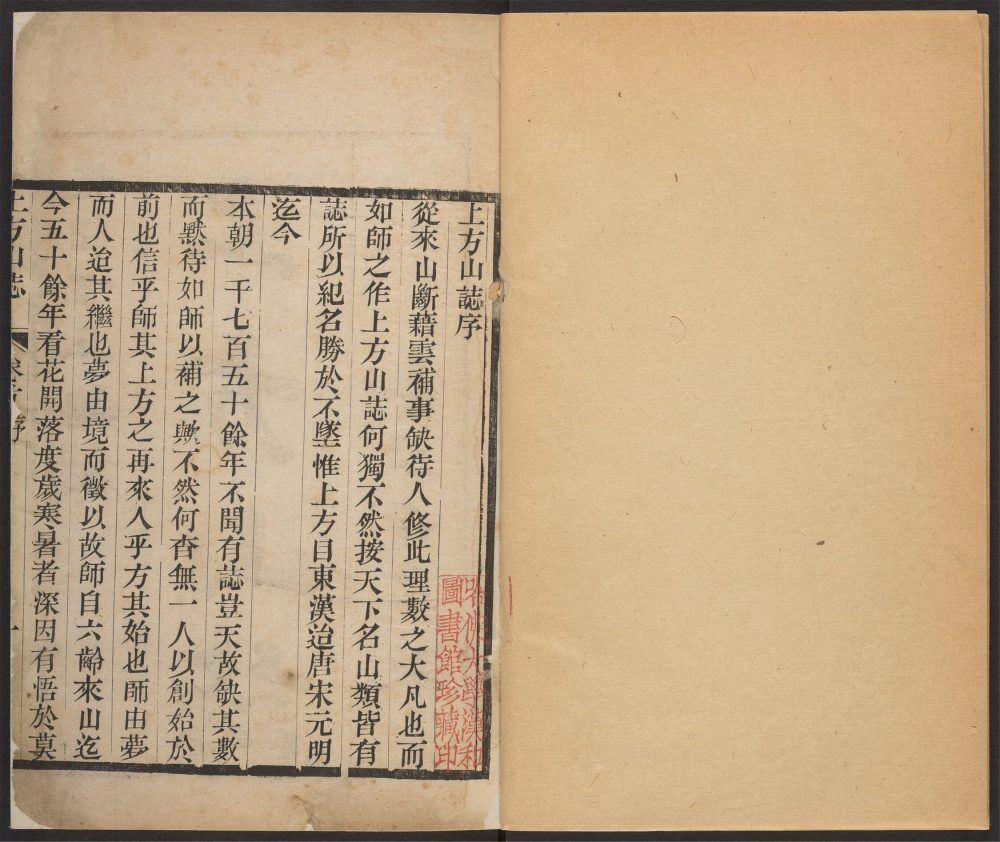 上方山誌序
從來山斷藉雲補事缺待人修此理數之大凡也而
如師之作上方山誌何獨不然按天下名山類皆有
誌所以紀名勝於不墜惟上方自東漢迨唐宋元明
迄今
本朝一千七百五十餘年不聞有誌豈天故缺其數
而默待如師以補之歟不然何杳無一人以創始於
前也信乎師其上方之再來人乎方其始也師由夢
而人迨其繼也夢由境而徵以故師自六齡來山迄
今五十餘年看花開落度歲寒暑者深因有悟於莫
上方山誌 序 一
哈佛大學漢和
圖書館珍藏印